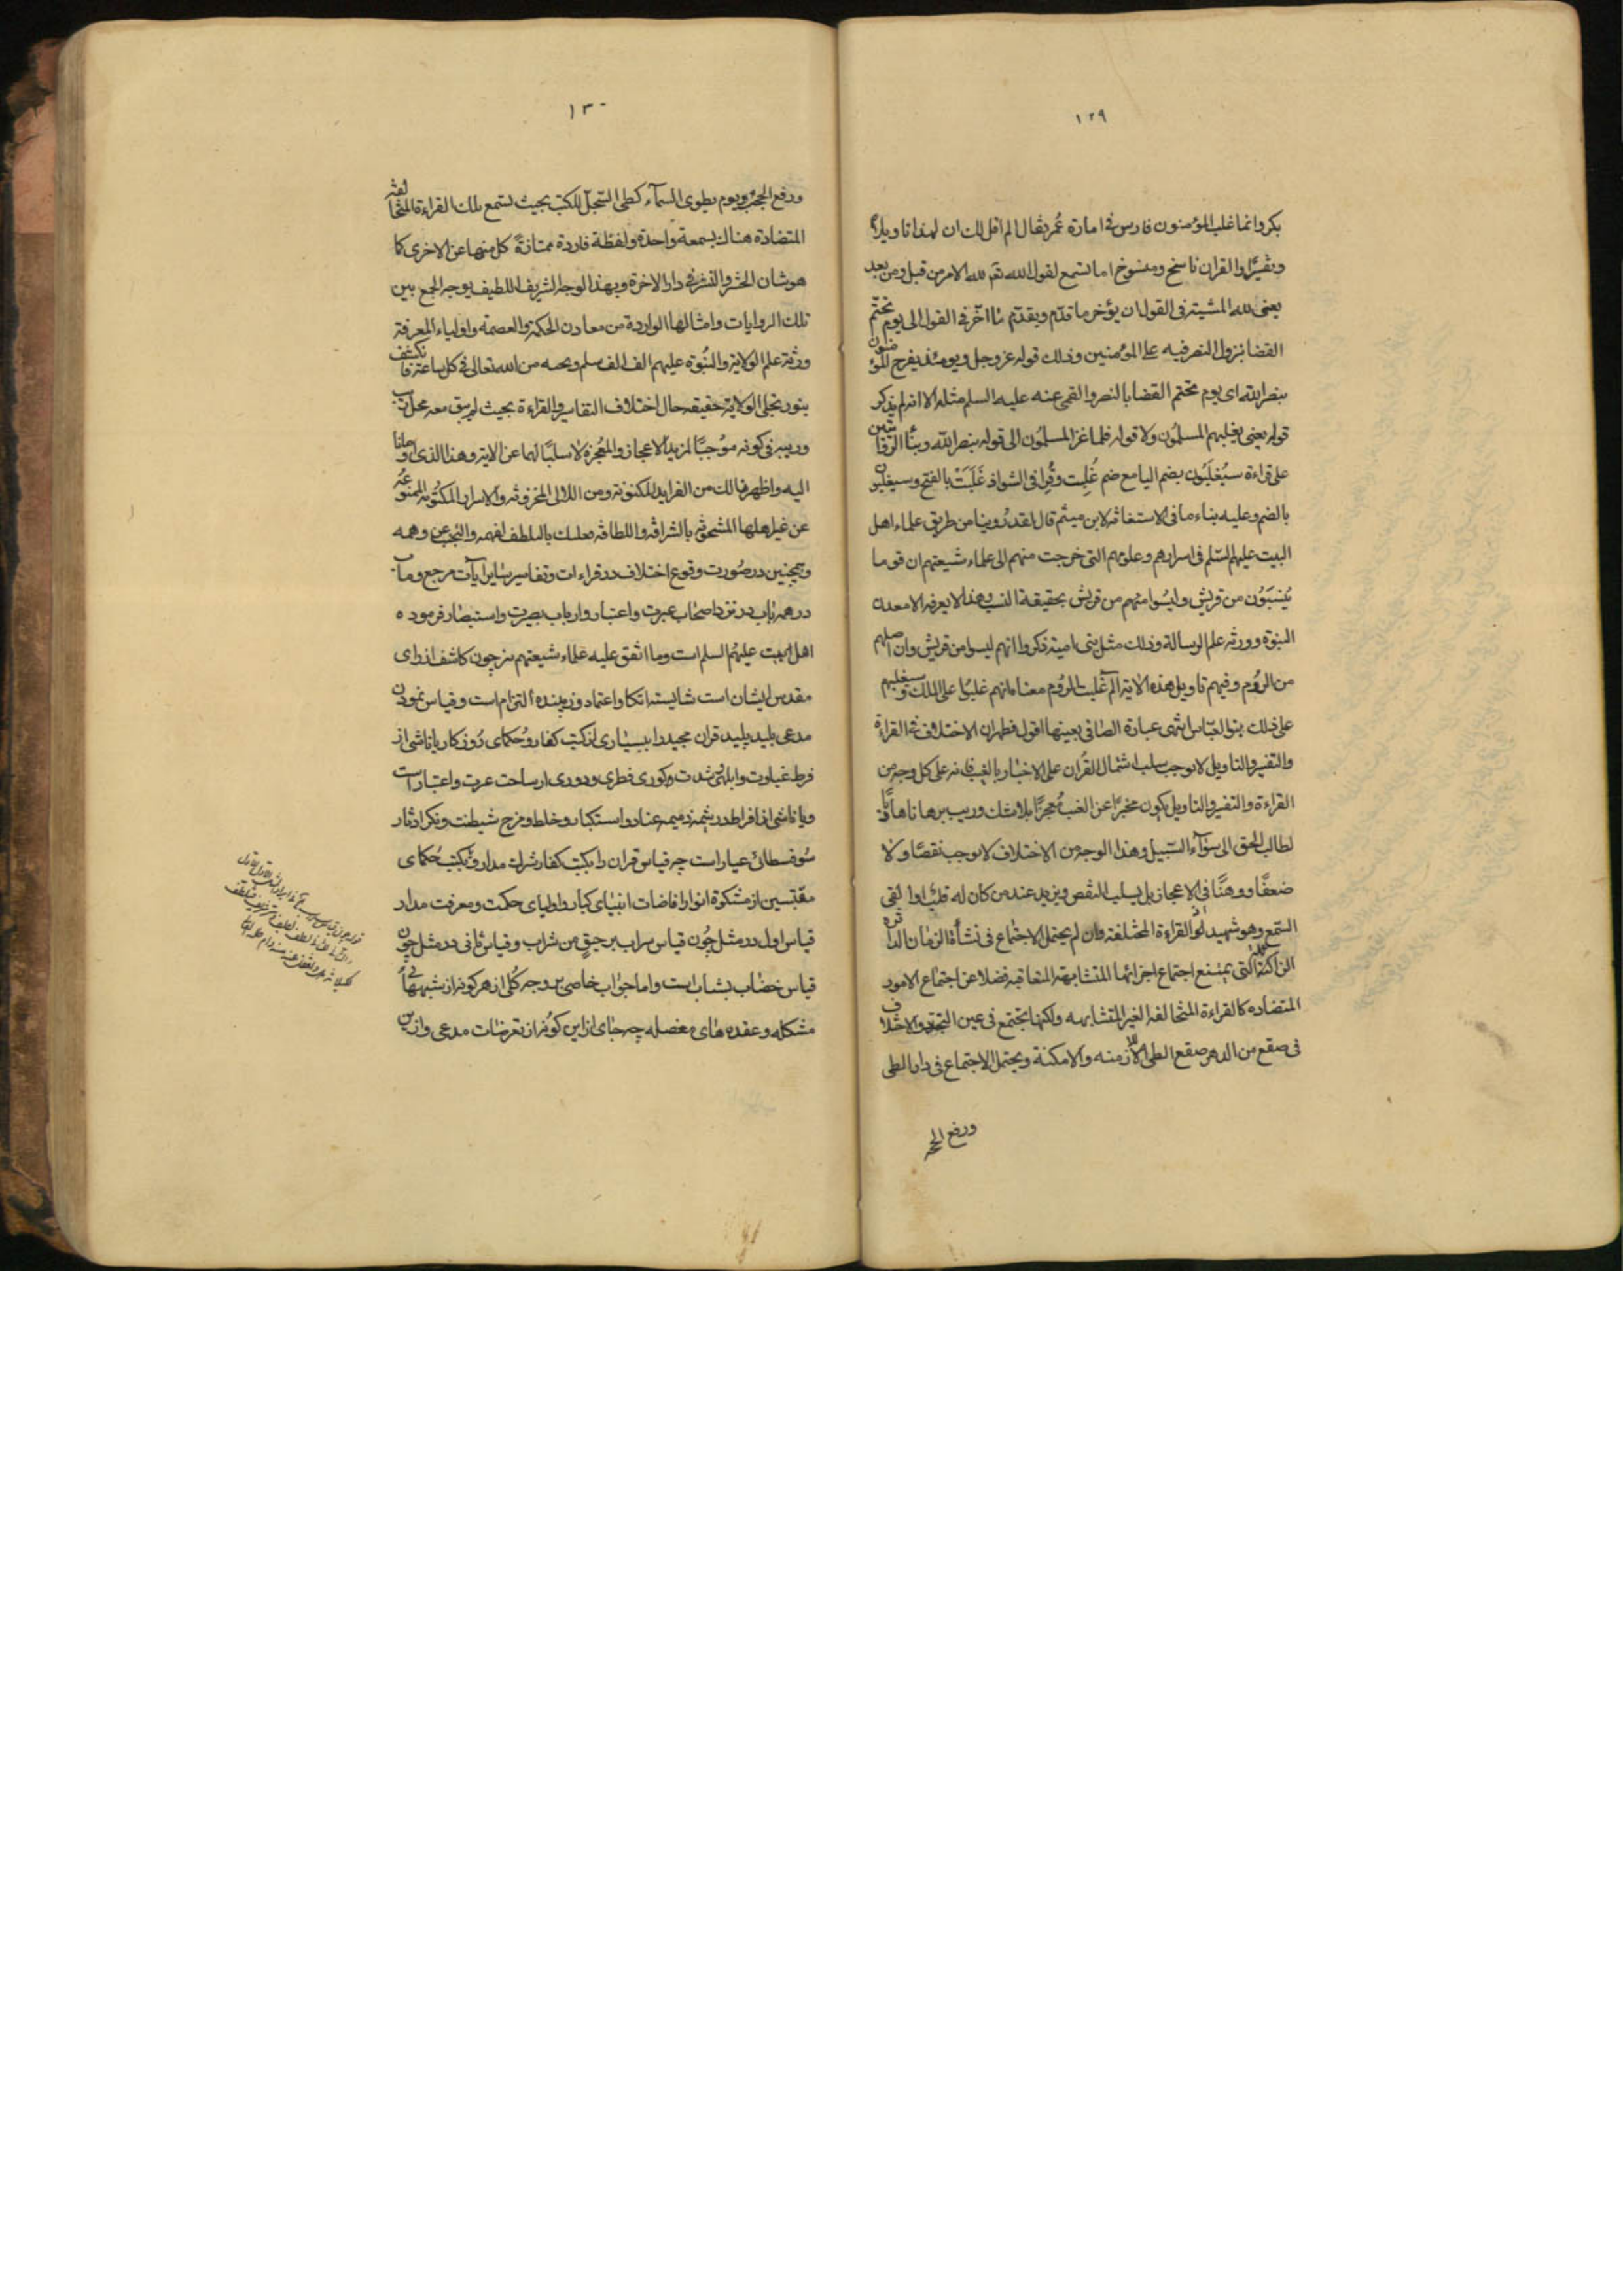 ١٢٩
بكر وانما غلب المؤمنون فارس فى امارة عُمر فقال الم اقل لك ان لهذا تاويلا
وتفسيرًا والقران ناسخ ومنسوخ اما تسمع لقول الله تع لله الامر من قبل ومن بعد
يعنى لله المشية فى القول ان يؤخر ما قدّم ويقدّم ما اخّر فى القول الى يوم تحتّم
القضا بنزول النصر فيه على المؤمنين وذلك قوله عز وجل ويومئذ يفرح المؤمنون
بنصر الله اى يوم تحتم القضا بالنصر والقمى عنه عليه السلم مثله الا انه لم يذكر
قوله يعنى يغلبهم المسلمُون ولا قوله فلما غزا المسلمُون الى قوله بنصر الله وبنأ الروايتين
على قراءة سيُغلَبُون بضم اليا مع ضم غُلِبت وقُرِا فى الشواذ غَلَبَتْ بالفتح وسيغلبون
بالضم وعليه بناء ما فى الاستغاثه لابن ميثم قال لقد رُوينا من طريق علماء اهل
البيت عليهم السّلم فى اسرارهم وعلومهم التى خرجت منهم الى علماء شيعتهم ان قوما
يُنسَبُون من قريش وليسُوا منهم من قريش بحقيقة النسب وهذا لا يعرفه الا معدن
النبوّة وورثه علم الرسالة وذلك مثل بنى امية ذكروا انهم ليسوا من قريش وان اصلهم
من الرُوم وفيهم تاويل هذه الاية الٓم غُلبت الرُوم معناه انهم غلبُوا على الملك وسيغلبهم
على ذلك بنو العبّاس انتهى عبارة الصّافى بعينها اقول فظهر ان الاختلاف فى القراءة
والتفسير والتاويل لا يوجب سلب اشتمال القُران على الاخبار بالغيب فانه على كل وجه من
القراءة والتفسير والتاويل يكون مخبرًا عن الغيب معُجزًا بلا شك وريب برهانا هاديًا
لطالب الحق الى سَوٰآء السّبيل وهذا الوجه من الاختلاف لا يوجب نقصًا ولا
ضعفًا ووهنًا فى الاعجاز بل يسلب النقص ويزيد عند من كان له قلبٌ او القى
السّمع وهو شهيد القراءة المختلفة وان لم يحتمل الاجتماع فى نشأة الزمان
التى يمتنع اجتماع اجزائها المتشابهة المتعاقبه فضلا عن اجتماع الامور
المتضاده كالقراءة المتخالفة الغير المتشابهه ولكنها تجتمع فى عين التجدد والاختلاف
فى صقع من الدهر صقع الطى للازمنه والامكنة ويحتمل الاجتماع فى دار الطى
ورفع الحجـ
١٣٠
ورفع الحجب ويوم يطوى السمآء كطى السّجلّ للكتب بحيث تستمع بتلك القراءة المتخالفة
المتضادة هناك بسمعة واحدة ولفظة فاردة ممتازة كل منها عن الاخرى كما
هو شان الحشر والنشر فى دار الاخرة وبهذا الوجه الشريف اللطيف يوجه الجمع بين
تلك الروايات وامثالها الواردة من معادن الحكمة والعصمة واولياء المعرفة
ورثة علم الولاية والنُبّوة عليهم الف الف سلم وتحيه من الله تعالى فى كل ساعة فانكشف
بنور تجلى الولاية حقيقه حال اختلاف التفاسير والقراءة بحيث لم يبق معه محل
وريبه فى كونه موُجبًا لمزيد الاعجاز والمعُجزة لا سلبًا لهما عن الاية وهذا الذى اومانا
اليه واظهرنا لك من الفرايد المكنونة ومن اللالى المخزونه والاسرار المكتُومه الممنوعُه
عن غير اهلها المشحونه بالشرافه واللطافه فعليك بالتلطف لفهمه والتجنب عن وهمه
وهمچنين در صُورت وقوع اختلاف در قراءات وتفاسير ساير ايات مرجع ومآب
در همه باب در نزد اصحاب عبرت واعتبار وارباب بصيرت واستبصار فرموده
اهل البيت عليهُم السلم است وما اتفق عليه علماء شيعتهم نيز چون كاشف از راى
مقدس ايشان است شايسته اتكا واعتماد وزيبنده التزام است وقياس نمودن
مدعى بليد پليد قران مجيد را ببسيارى از كتب كفار وحُكماى رُوزكار يا ناشى از
فرط غباوت وابلهى وشدت وكورى فطرى ودورى از ساحت عبرت واعتبار است
ويا ناشى از افراط در شيمه ذميمه عناد واستكبار وخلط ومزج شيطنت ونكرا دثار
سُوفسطائى عيار است چه قياس قران را بكتب كفار شرك مدار وبكتب حُكماى
مقتبسين از مشكوة انوار افاضات انبياى كبار واوليائ حكمت ومعرفت مدار
قياس اول در مثل چُون قياس سراب برحيقٍ من شراب وقياس ثانى در مثل چون
قياس خضاب بشباب است واما جواب خاصى بر وجه كُلى از هر كونه از شبهه‌هاى
مشكله وعقده هاى معضله چه جاى از اين كونه از تعرضات مدعى واز اين